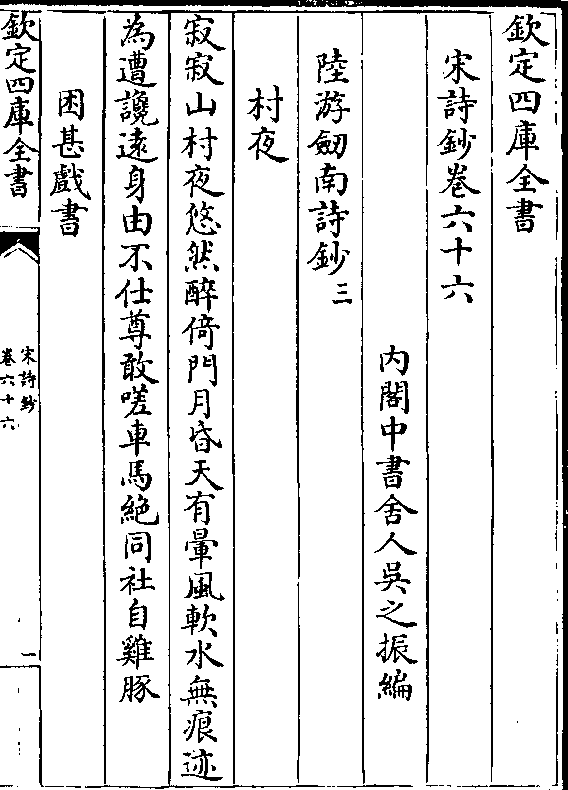 欽定四庫全書
宋詩鈔卷六十六
內閣中書舍人吳之振編
陸游劒南詩鈔三
村夜
寂寂山村夜悠然醉倚門月昏天有暈風軟水無痕迹
為遭讒逺身由不仕尊敢嗟車馬絶同社自雞豚
困甚戲書
欽定四庫全書
宋詩鈔
卷六十六
一